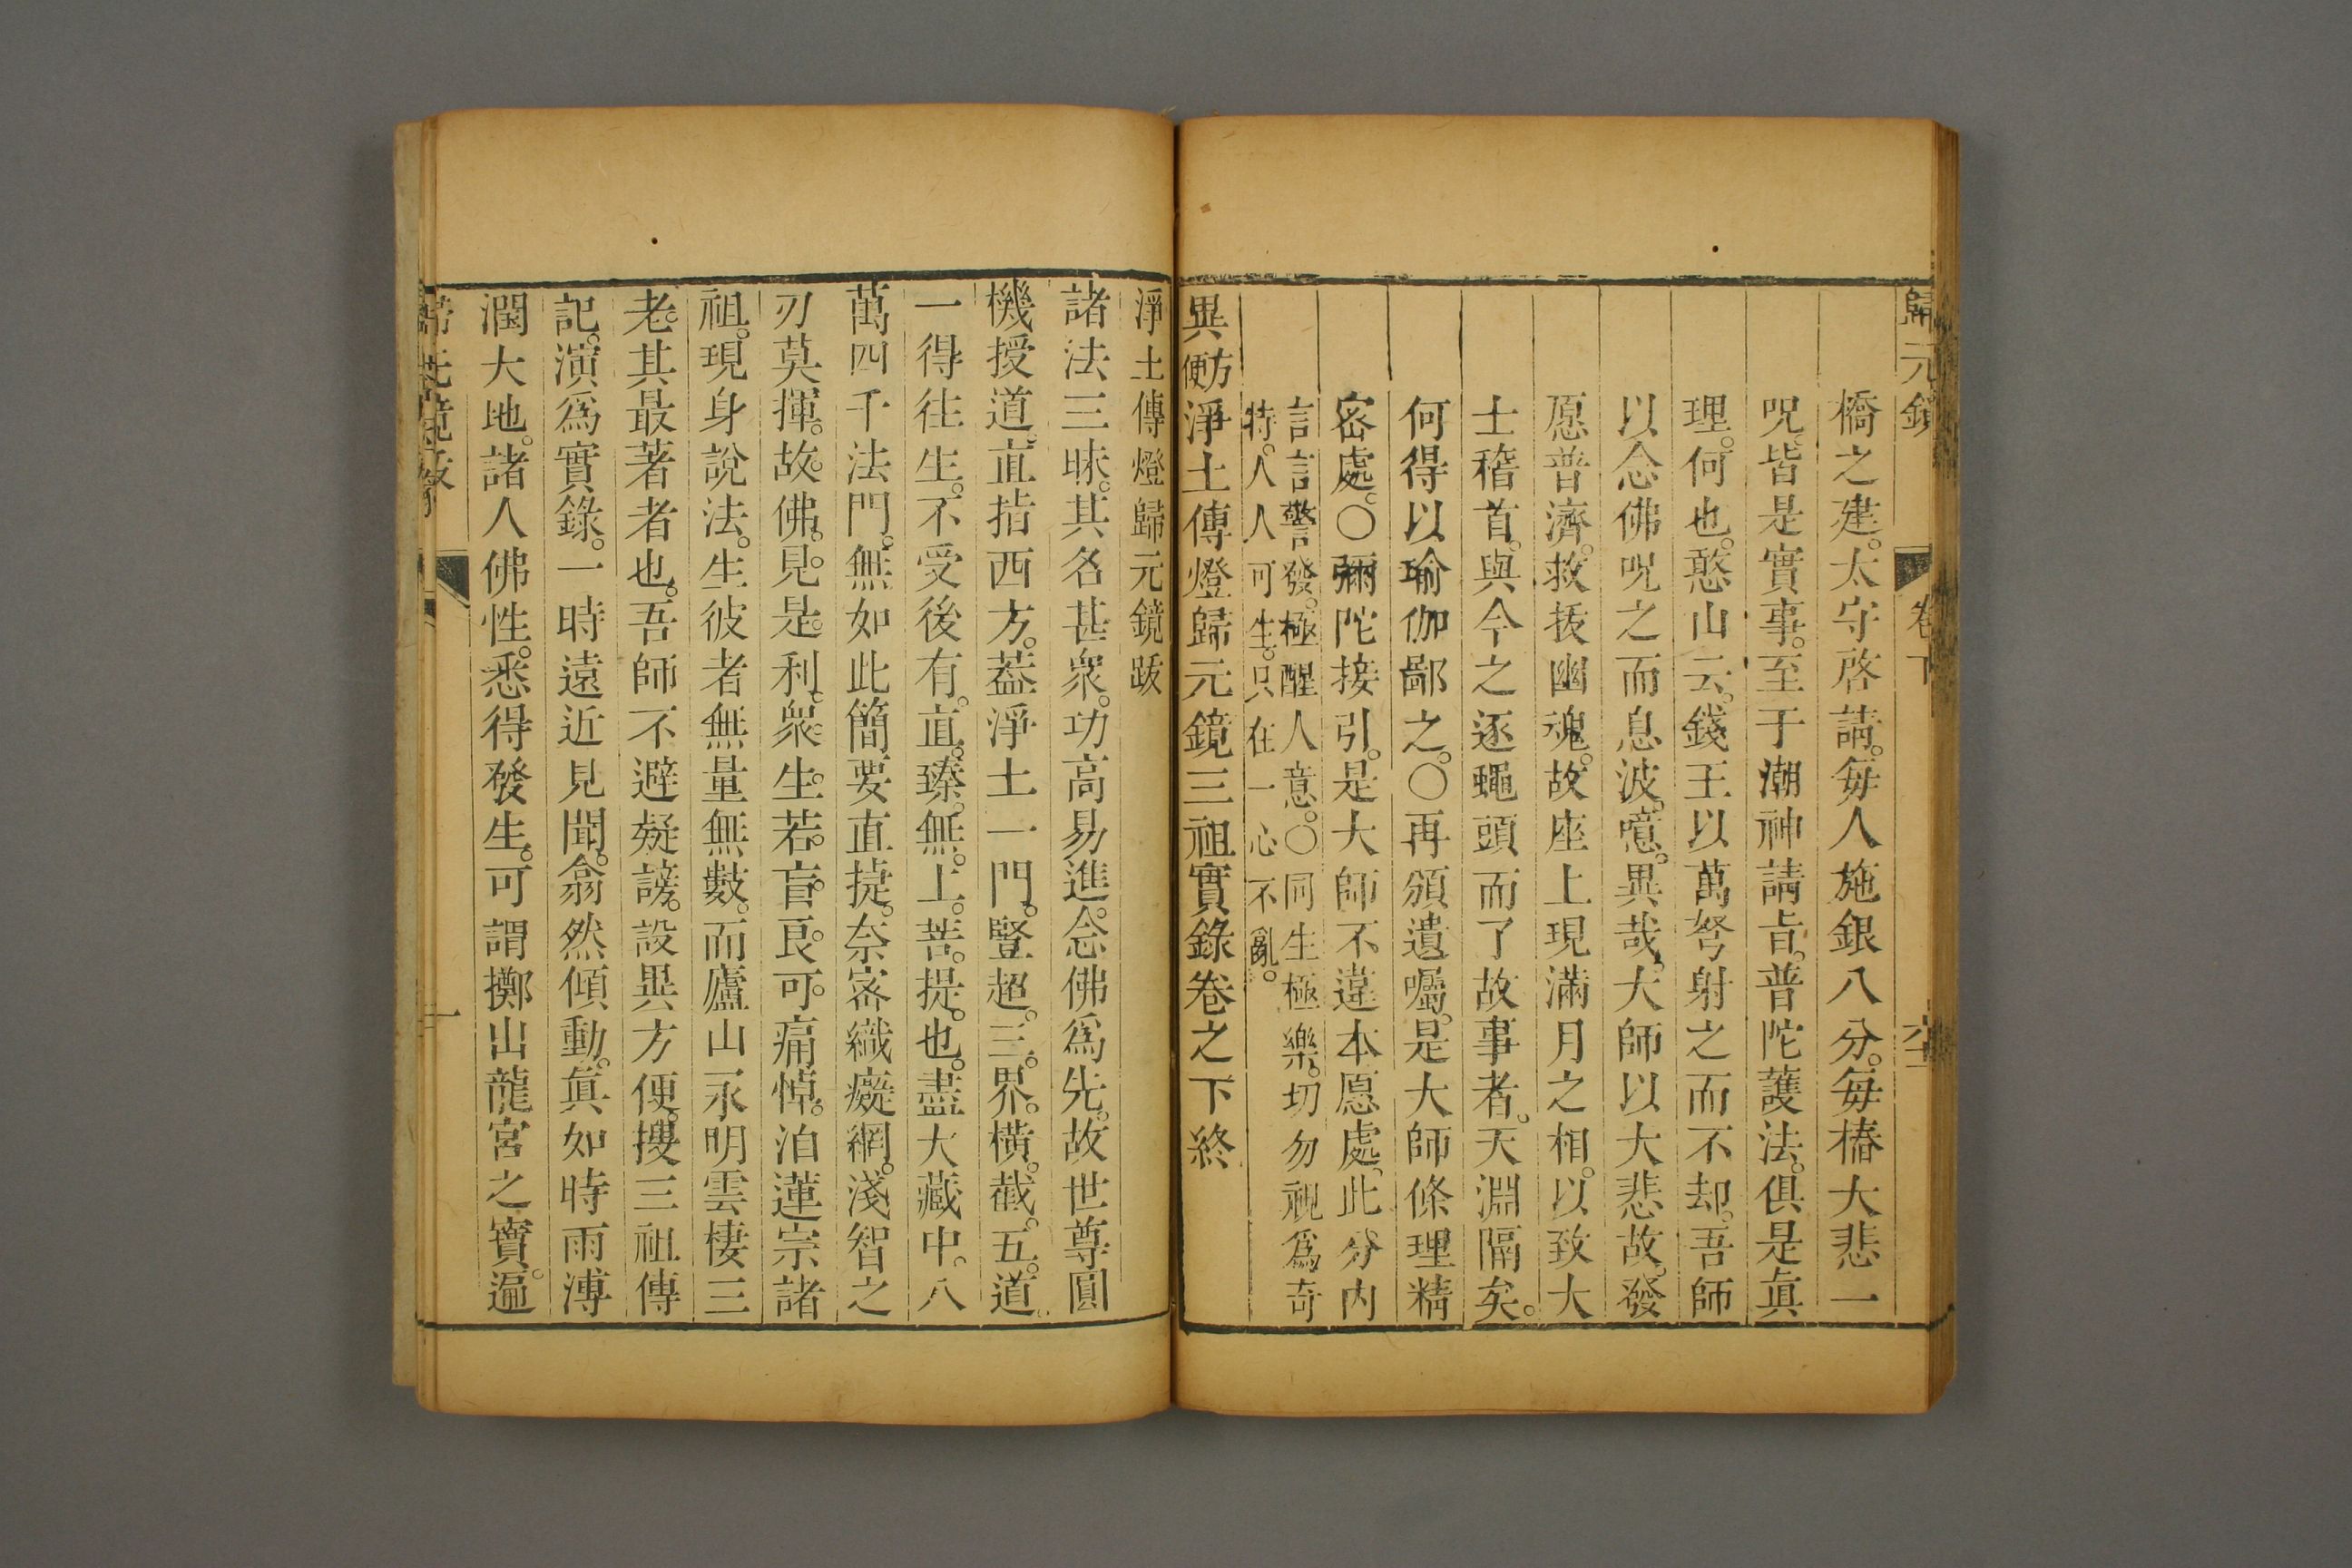 歸元鏡 卷下 六二
橋之建。太守啓請。每人施銀八分。每樁大悲一
呪。皆是實事。至于潮神請旨。普陀護法。俱是眞
理。何也。憨山云。錢王以萬弩射之而不却。吾師
以念佛呪之而息波。噫。異哉。大師以大悲故。發
愿普濟。救拔幽魂。故座上現滿月之相。以致大
士稽首。與今之逐蠅頭而了故事者。天淵隔矣。
何得以瑜伽鄙之。〇再頒遺囑。是大師條理精
密處。〇彌陀接引。是大師不違本愿處。此分內
言言警發。極醒人意。〇同生極樂。切勿視爲奇
特。人人可生。只在一心不亂。
異方便淨土傳燈歸元鏡三祖實錄卷之下終
淨土傳燈歸元鏡跋
諸法三昧。其名甚衆。功高易進。念佛爲先。故世尊圓
機授道。直指西方。葢淨土一門。豎超。三。界。橫。截。五。道。
一得往生。不受後有。直。臻。無。上。菩。提。也。盡大藏中。八
萬四千法門。無如此簡要直捷。奈密織癡網。淺智之
刃莫揮。故。佛。見。是。利。衆。生。若。盲。良。可。痛。悼。洎蓮宗諸
祖。現身說法。生彼者無量無數。而廬山永明雲棲三
老。其最著者也。吾師不避疑謗。設異方便。搜三祖傳
記。演爲實錄。一時遠近見聞。翕然傾動。眞如時雨溥
潤大地。諸人佛性。悉得發生。可謂擲山龍宮之寶。遍
歸元鏡跋 一